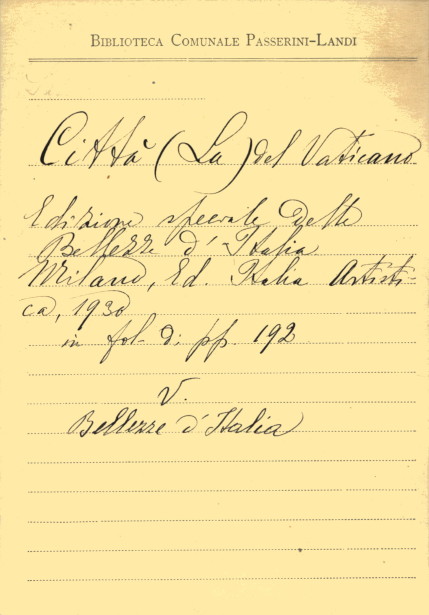 BIBLIOTECA COMUNALE PASSERINI-LANDI
Città (La) del Vaticano
Edizione speciale delle
Bellezze d'Italia
Milano, Ed. Italia Artisti-
ca, 1930
in fol. di pp. 192
V.
Bellezze d'Italia